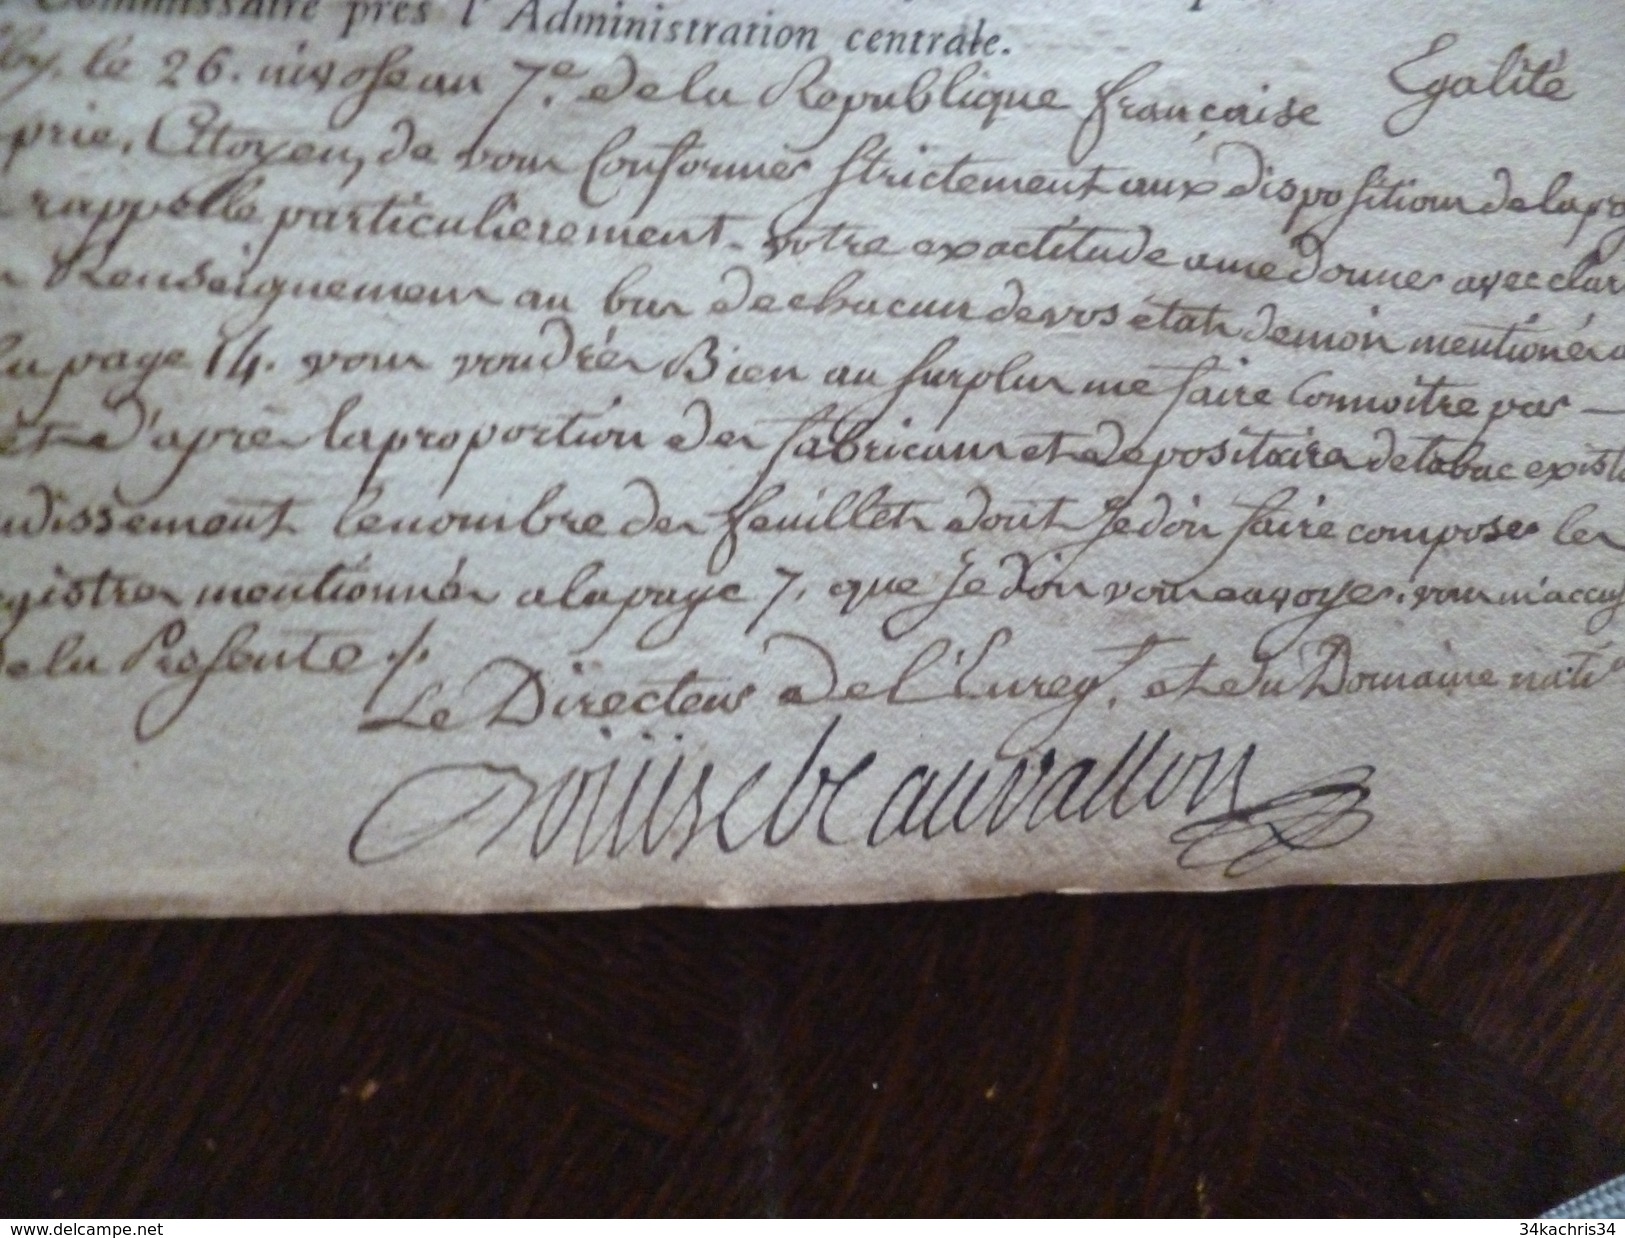 Commissaire près l'Administration centrale.
le 26. nivose an 7.e de la Republique française Egalité
prie, Citoyen, de vous Conformér strictement aux dispositions de la
rappelle particulierement votre exactitude a me donner avec
Renseignemens au bas de chacun de vos états de mois mentionés
page 14. vous voudrés Bien au surplus me faire Connoitre par —
d'après la proportion des fabricans et depositaires de tabac
le nombre des feuillets dont je dois faire composer les
mentionnés a la page 7. que je dois vous envoyer. vous
de la Presente ./.
Le Directeur de l'Enreg.t, et du Domaine nat.l
Louïse beauvallon
www.delcampe.net
34kachris34